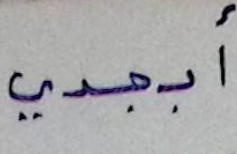 أبجدي